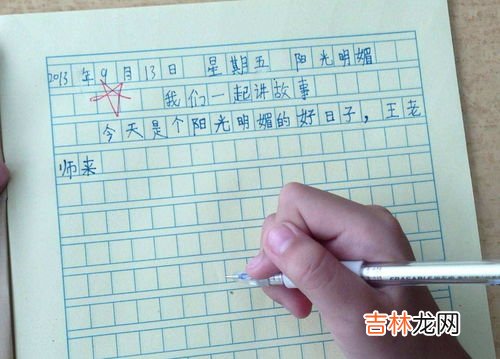 2013年9月13日 星期五 阳光明媚
我们一起讲故事
今天是个阳光明媚的好日子，王老
师来
吉林龙网